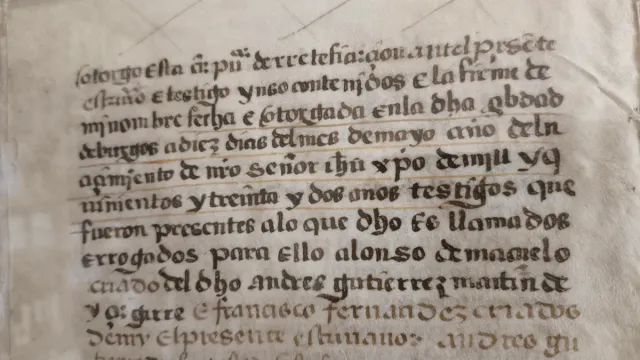 otorgo esta cᵃ. puᵃ. de rretefiaçion antel presente
escriuᵒ e testigo yuso contenjdos e la firme de
mj nombre fecha e otorgada en la dha çbdad
de burgos a diez dias del mes de mayo año del n
açimiento de nro señor ihu xpo de mill y q
uinientos y treinta y dos anos testigos que
fueron presentes a lo que dho es llamados
e rrogados para ello alonso de maçuelo
criado del dho andres gutierrez martin de
e francisco fernandez criados
de mj el presente escriuano andres gu